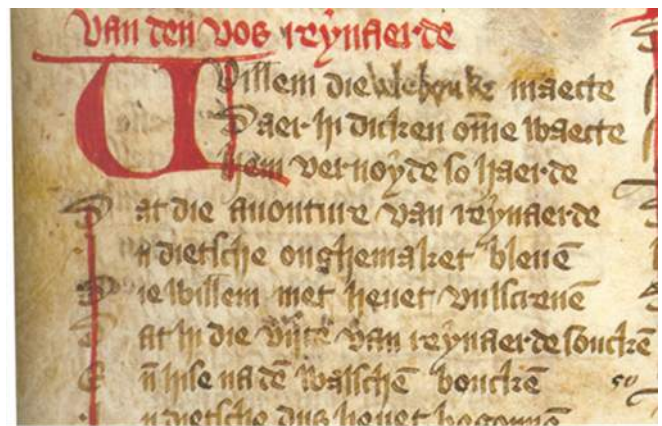 Van den vos reynaerde
Willem die maecte
Daer hi dicken om̄e waecte
hem vernoyde so haerde
Dat die auonture van reynaerde
In dietsche onghemaket bleuē
Die willem niet heuet vulscreuē
Dat hi die vijte van reynaerde souckē
Eñ hise na dē walschē bouckē
In dietsche dus heuet begonnē